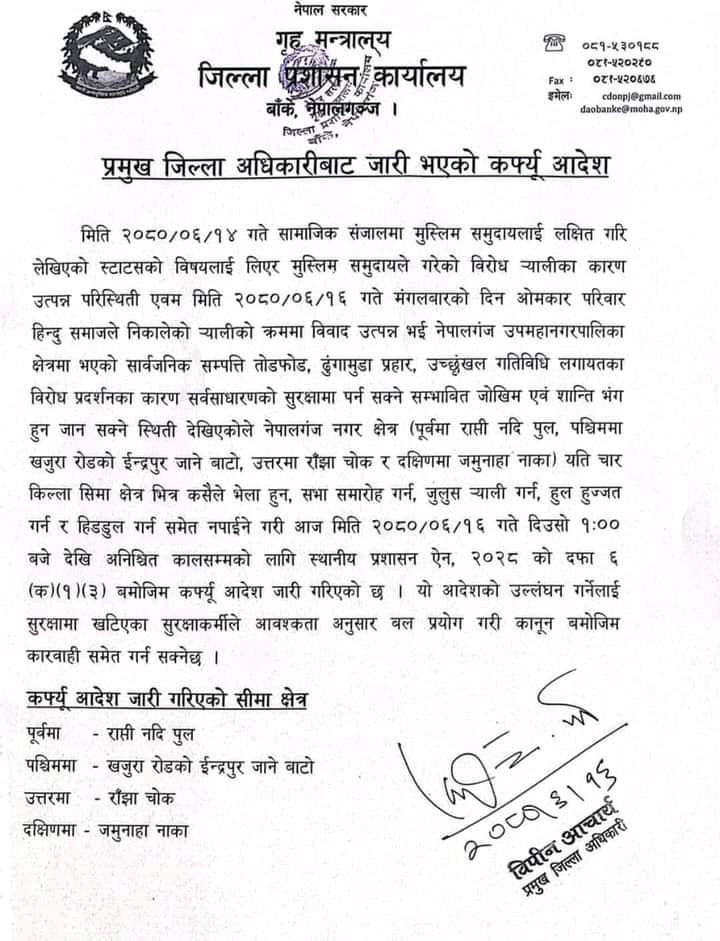 नेपाल सरकार
गृह मन्त्रालय
जिल्ला प्रशासन कार्यालय
बाँके, नेपालगञ्ज ।
०८१-५३०१८८
०८१-५२०२१०
Fax : ०८१-५२०६७६
इमेलः cdonpj@gmail.com
daobanke@moha.gov.np
प्रमुख जिल्ला अधिकारीबाट जारी भएको कर्फ्यू आदेश
मिति २०८०/०६/१४ गते सामाजिक संजालमा मुस्लिम समुदायलाई लक्षित गरि
लेखिएको स्टाटसको विषयलाई लिएर मुस्लिम समुदायले गरेको विरोध र्‍यालीका कारण
उत्पन्न परिस्थिती एवम मिति २०८०/०६/१६ गते मंगलबारको दिन ओमकार परिवार
हिन्दु समाजले निकालेको र्‍यालीको क्रममा विवाद उत्पन्न भई नेपालगंज उपमहानगरपालिका
क्षेत्रमा भएको सार्वजनिक सम्पत्ति तोडफोड, ढुंगामुडा प्रहार, उच्छृंखल गतिविधि लगायतका
विरोध प्रदर्शनका कारण सर्वसाधारणको सुरक्षामा पर्न सक्ने सम्भावित जोखिम एवं शान्ति भंग
हुन जान सक्ने स्थिती देखिएकोले नेपालगंज नगर क्षेत्र (पूर्वमा राप्ती नदि पुल, पश्चिममा
खजुरा रोडको ईन्द्रपुर जाने बाटो, उत्तरमा राँझा चोक र दक्षिणमा जमुनाहा नाका) यति चार
किल्ला सिमा क्षेत्र भित्र कसैले भेला हुन, सभा समारोह गर्न, जुलुस र्‍याली गर्न, हुल हुज्जत
गर्न र हिडडुल गर्न समेत नपाईने गरी आज मिति २०८०/०६/१६ गते दिउसो १:००
बजे देखि अनिश्चित कालसम्मको लागि स्थानीय प्रशासन ऐन, २०२८ को दफा ६
(क)(१)(३) बमोजिम कर्फ्यू आदेश जारी गरिएको छ । यो आदेशको उल्लंघन गर्नेलाई
सुरक्षामा खटिएका सुरक्षाकर्मीले आवश्कता अनुसार बल प्रयोग गरी कानून बमोजिम
कारवाही समेत गर्न सक्नेछ ।
कर्फ्यू आदेश जारी गरिएको सीमा क्षेत्र
पूर्वमा - राप्ती नदि पुल
पश्चिममा - खजुरा रोडको ईन्द्रपुर जाने बाटो
उत्तरमा - राँझा चोक
दक्षिणमा - जमुनाहा नाका
विपीन आचार्य
प्रमुख जिल्ला अधिकारी